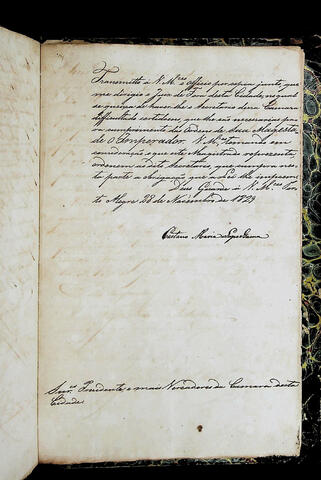 Transmitto à V. M.ces o officio por copia junto, que
me dirigio o Juiz de Fora desta Cidade, no qual
se queixa de haver lhe o Secretario dessa Camara
difficultado certidoens, que lhe são necessarias para
cumprimento das Ordens de Sua Magesta-
de O Imperador. V. M.ces tomando em
consideração o que este Magistrado representa,
ordenem ao dito Secretario, que para nes-
ta parte a obrigação que a Lei lhe impoem.
Deus Guarde à V. M.ces Por-
to Alegre 28 de Novembro de 1829
Caetano Maria Lopes Gama
Snr.es Presidente, e mais Vereadores da Camara desta
Cidade.